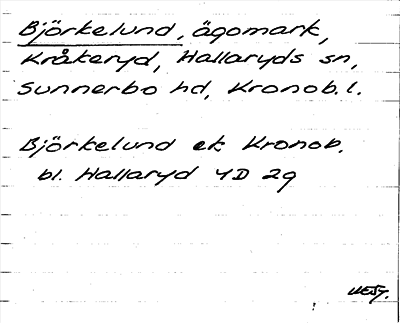 Björkelund, ägomark,
Kråkeryd, Hallaryds sn,
Sunnerbo hd, Kronob. l.
Björkelund ek Kronob.
bl. Hallaryd 4D 2g